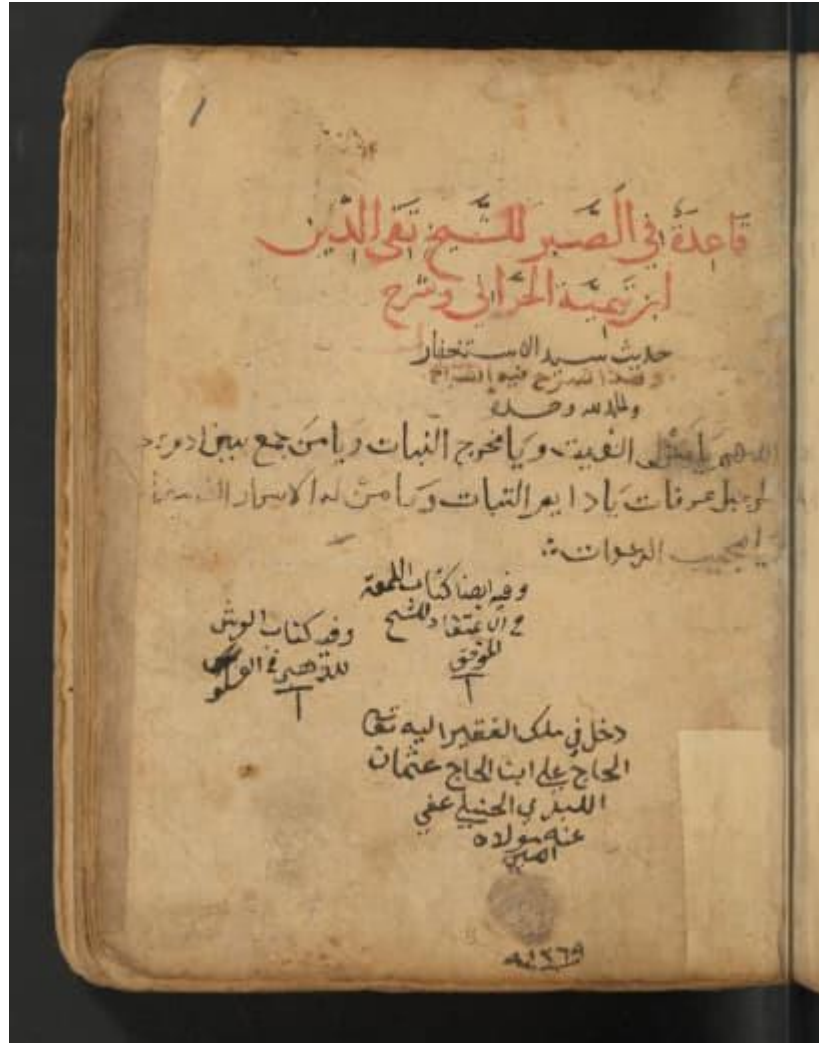 قَاعِدَةٌ فِي الصَّبر للشَّيخ تَقي الدّين
ابن تَيميَّة الحَرَّاني وشرح
حديث سيد الاستغفار
والحمد لله وحده
اللهم يا منزل الغيث ويا مخرج النبات ويا من جمع بين ادم
جبل عرفات يا دايم الثبات ويا من له الاسرار
يا مجيب الدعوات
وفيه ايضا كتاب اللمعة
في الاعتقاد للشيخ
الموفق
وفيه كتاب
للذهبي في
دخل في ملك الفقير اليه تعا
الحاج علي ابن الحاج عثمان
الحنبلي عفي
عنه مولاه
امين